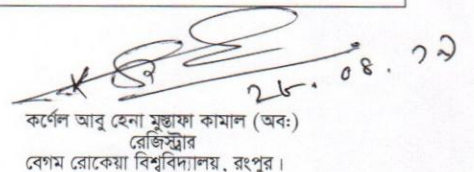 ২৮. ০৪. ১৯
কর্ণেল আবু হেনা মুস্তাফা কামাল (অবঃ)
রেজিস্ট্রার
বেগম রোকেয়া বিশ্ববিদ্যালয়, রংপুর।